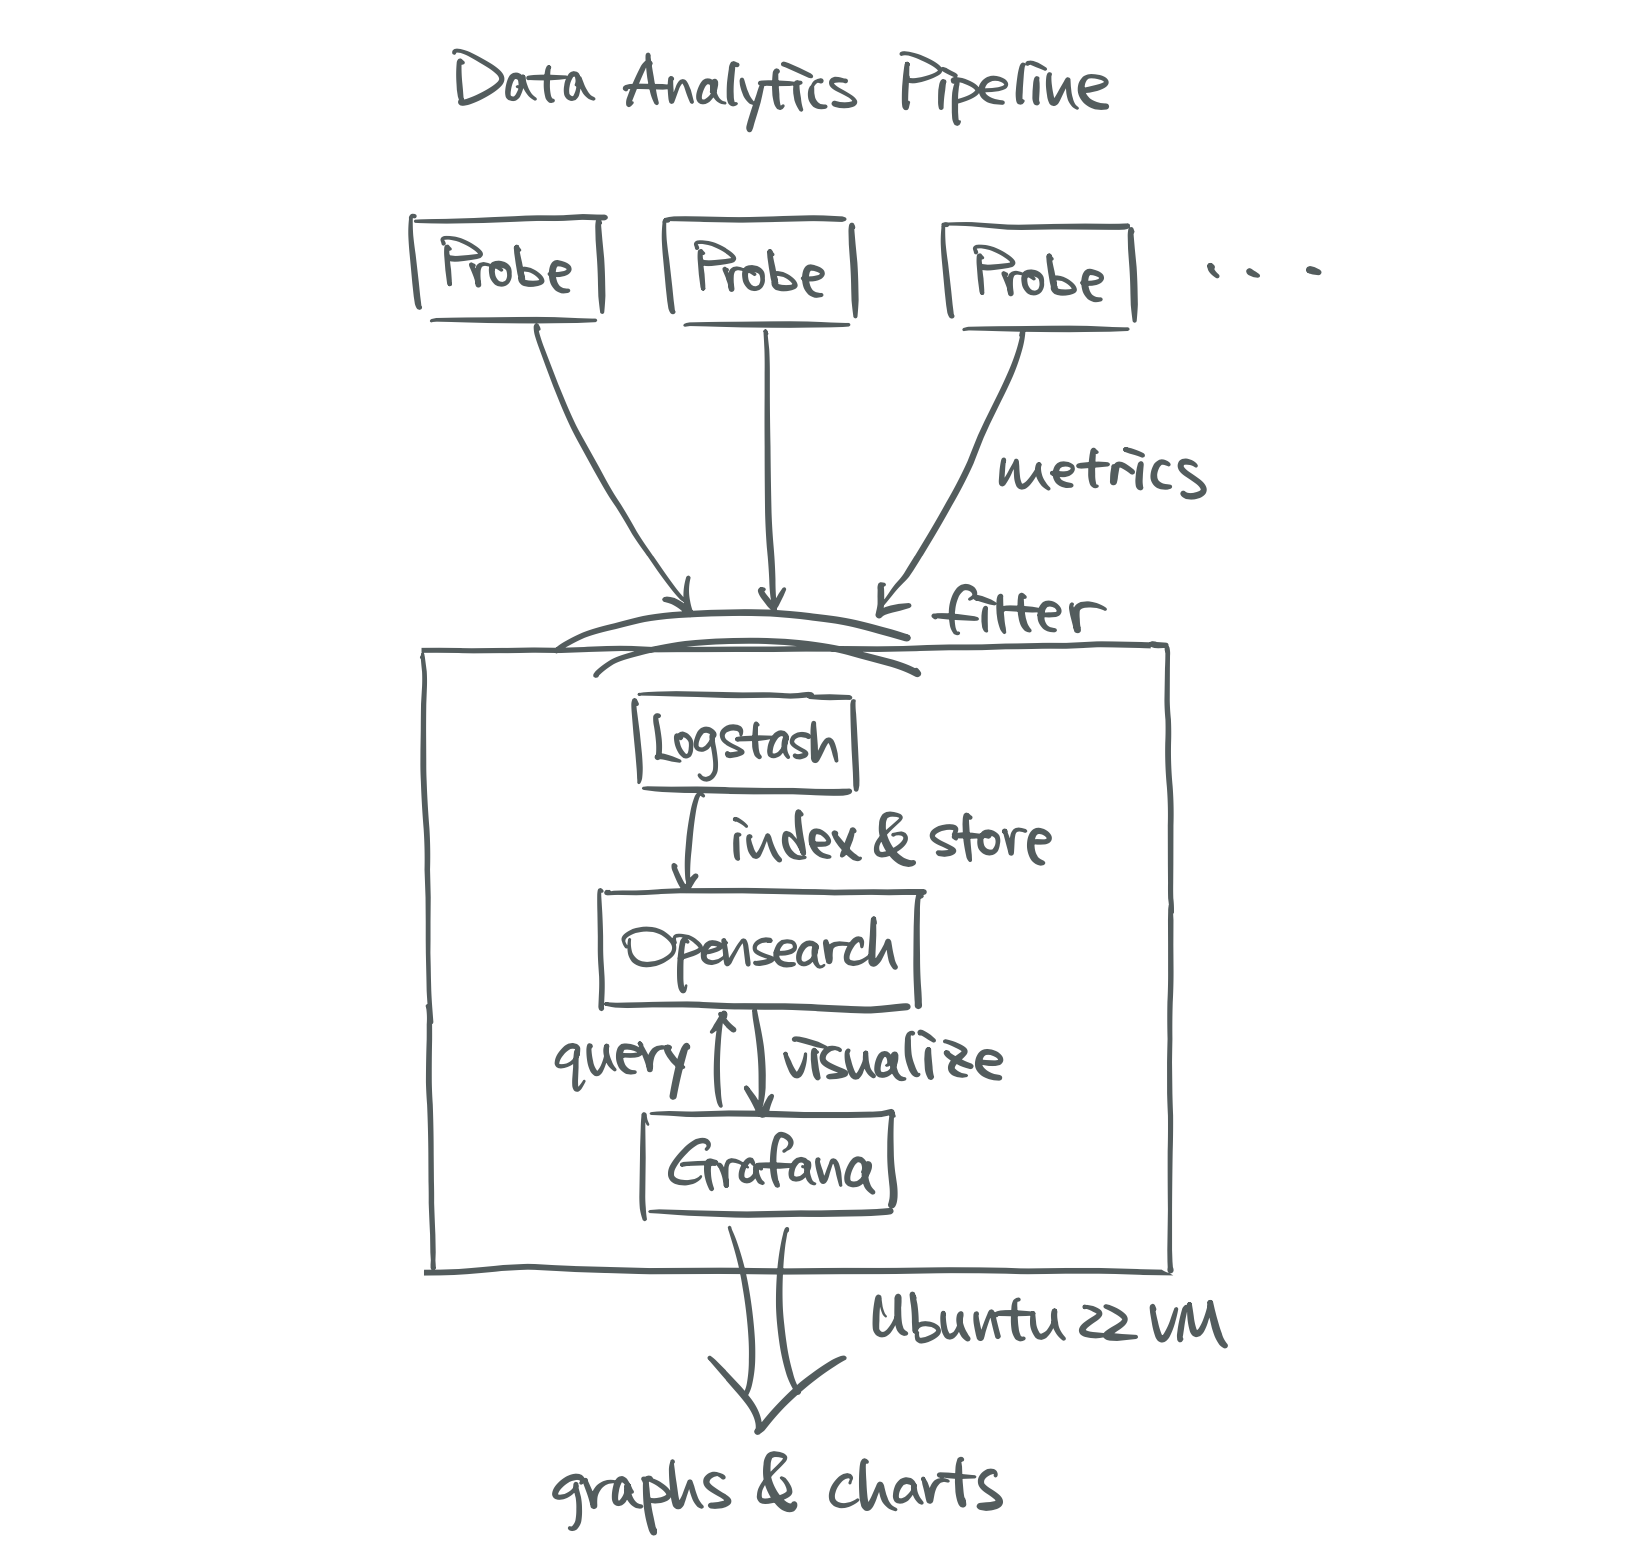 Data Analytics Pipeline
Probe Probe Probe ...
metrics
filter
Logstash
index & store
Opensearch
query visualize
Grafana
Ubuntu 22 VM
graphs & charts